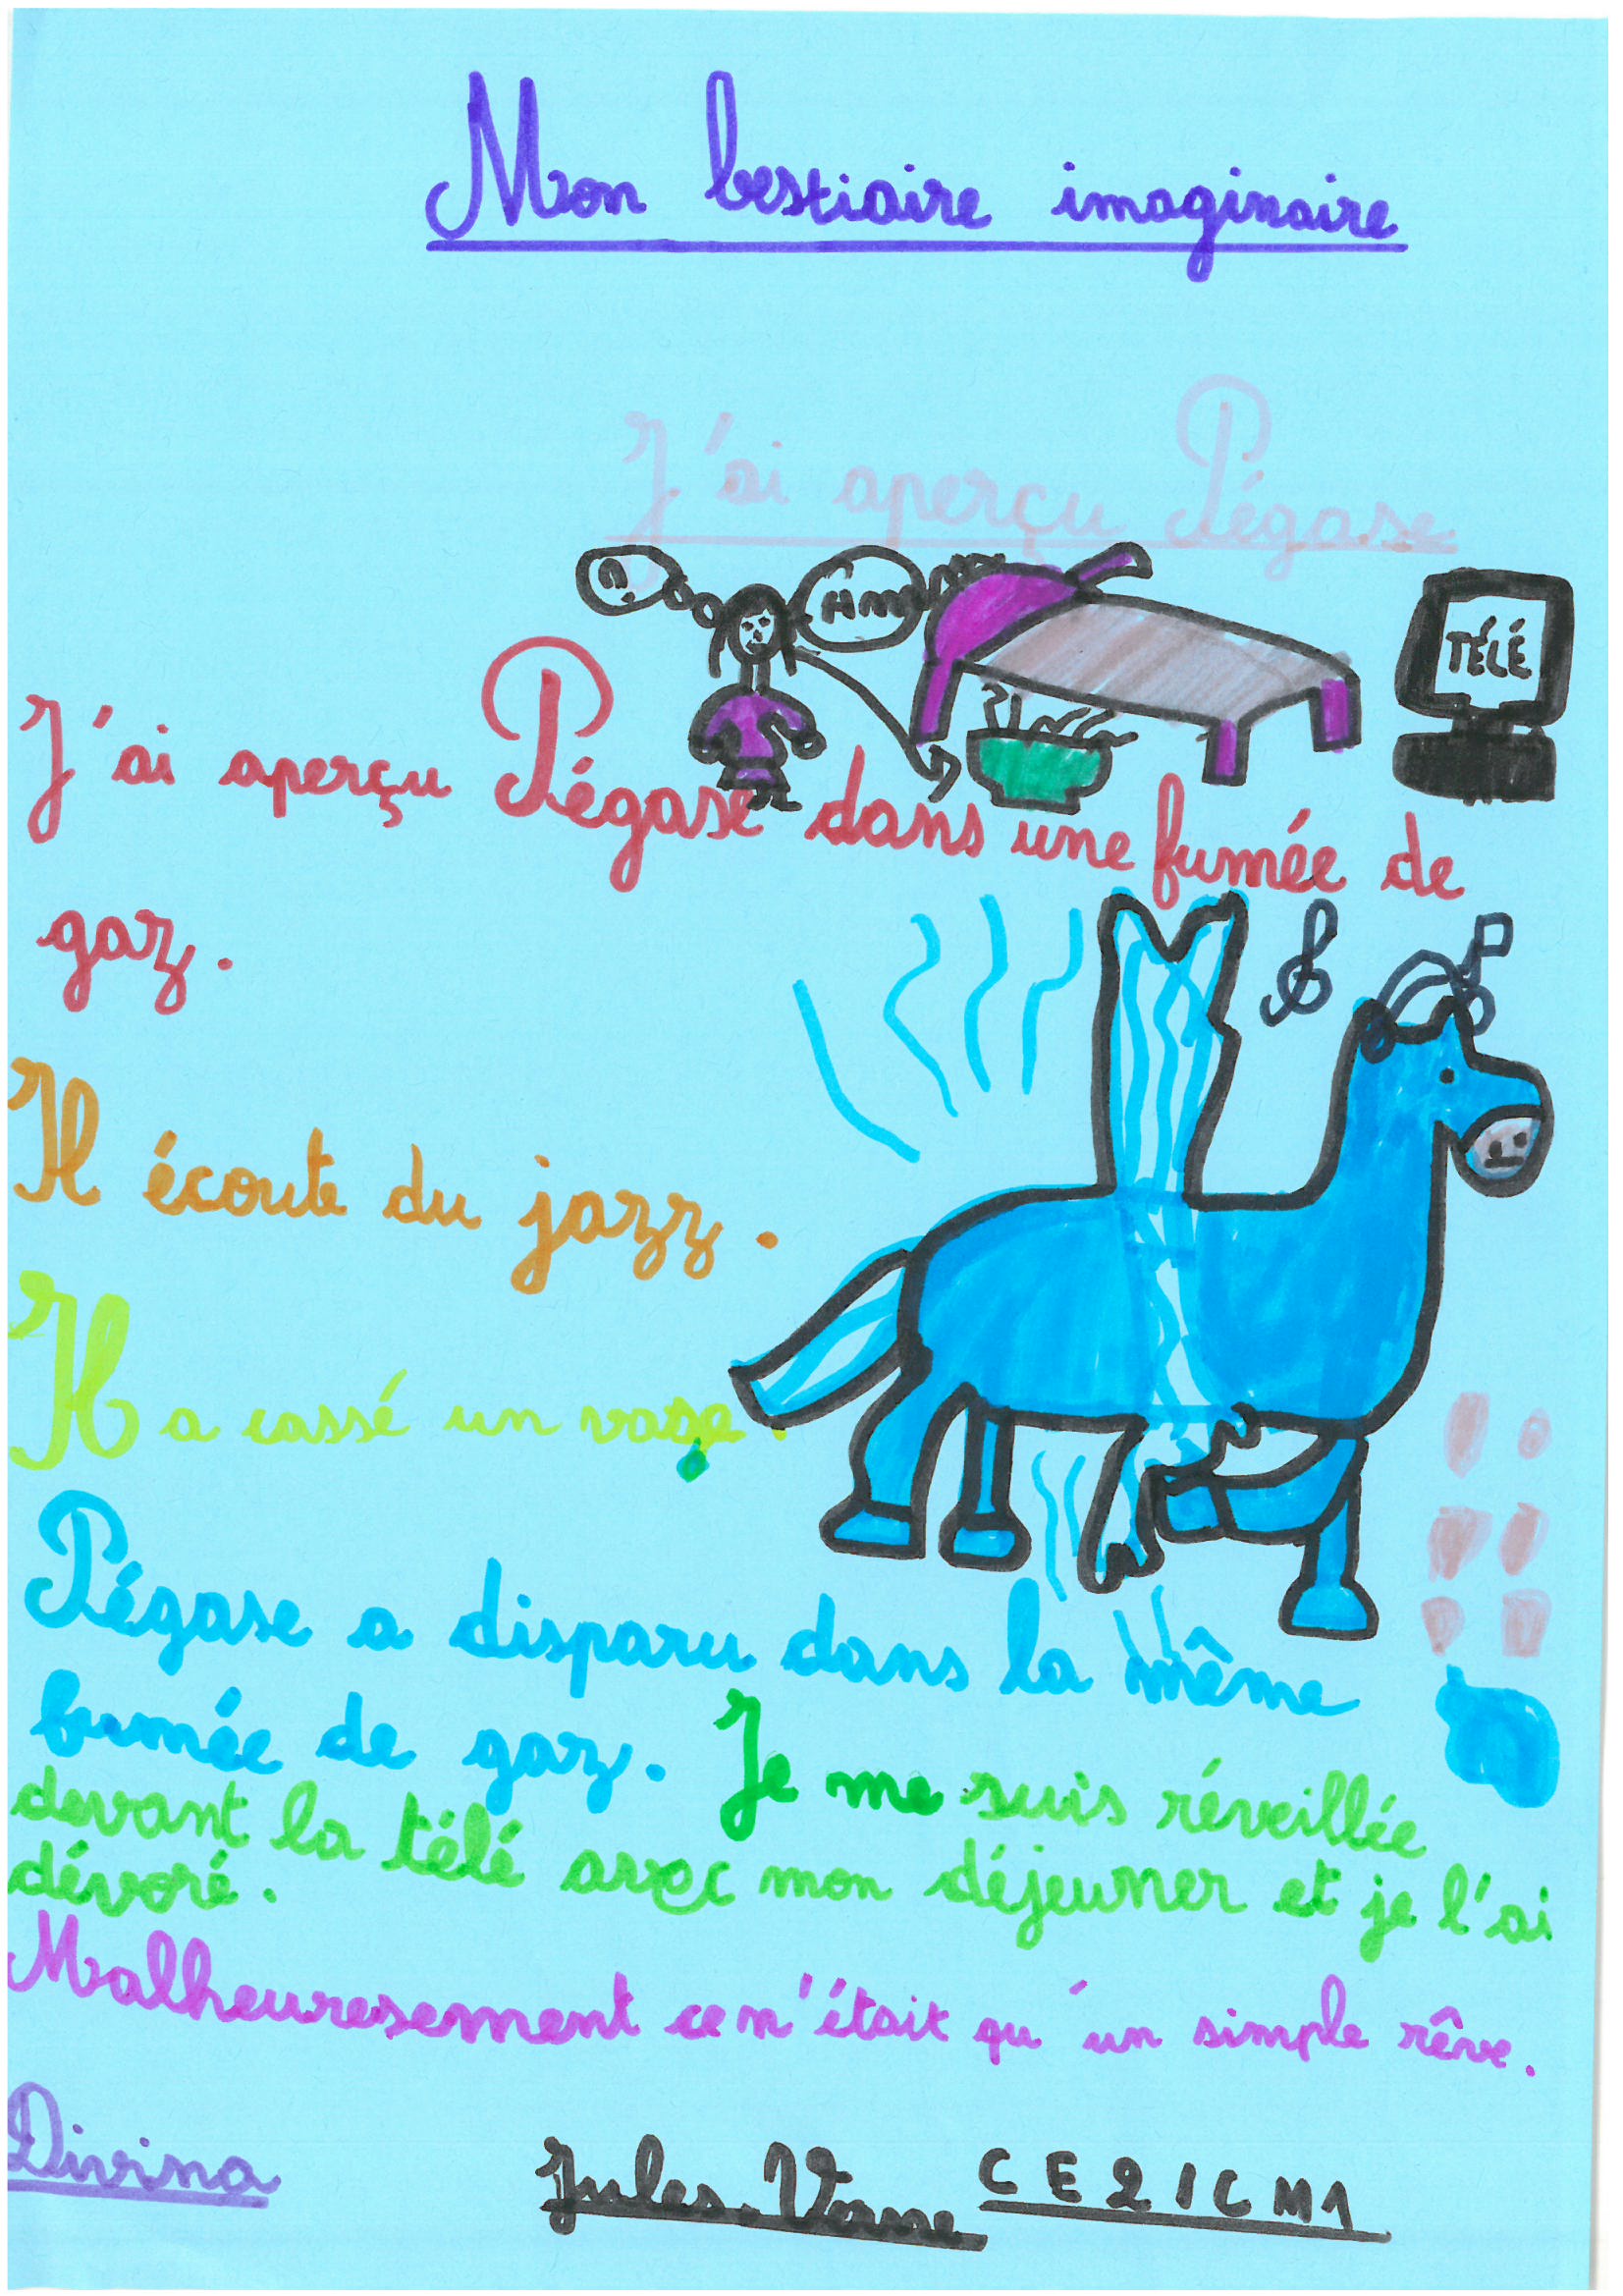 Mon bestiaire imaginaire
J'ai aperçu Pégase
Hm
TÉLÉ
J'ai aperçu Pégase dans une fumée de
gaz.
Il écoute du jazz.
Il a cassé un vase.
Pégase a disparu dans la même
fumée de gaz. Je me suis réveillée
devant la télé avec mon déjeuner et je l'ai
dévoré.
Malheuresement ce n'était qu'un simple rêve.
Divina
Jules-Verne CE2/CM1